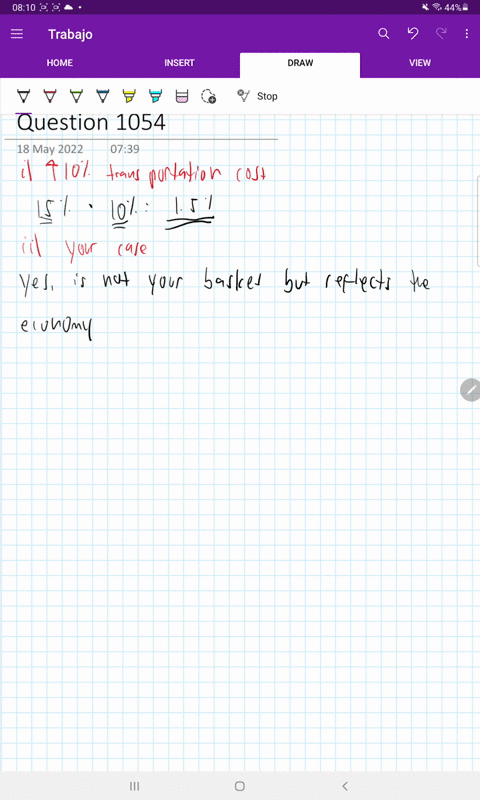 08:10 44%
Trabajo
HOME INSERT DRAW VIEW
Stop
Question 1054
18 May 2022 07:39
i) ↑ 10% transportation cost
15% · 10% = 1.5%
ii) your case
Yes, is not your basket but reflects the
economy